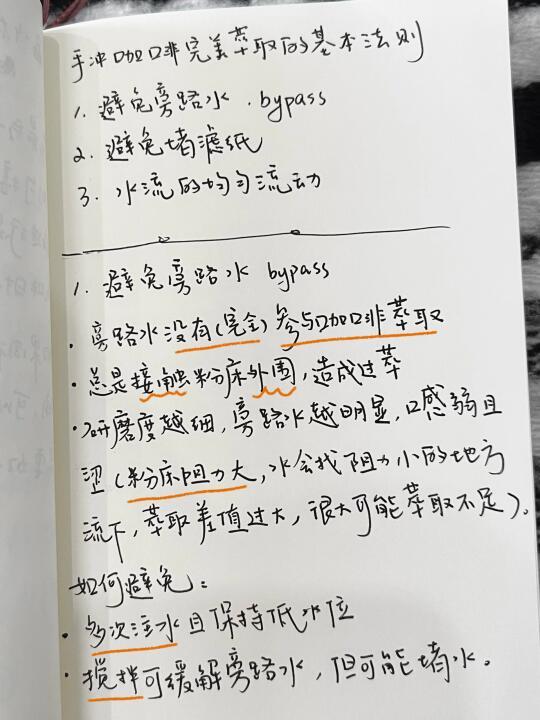 手冲咖啡完美萃取的基本法则
1. 避免旁路水 . bypass
2. 避免堵滤纸
3. 水流的均匀流动
1. 避免旁路水 bypass
· 旁路水没有(完全)参与咖啡萃取
· 总是接触粉床外围,造成过萃
· 研磨度越细,旁路水越明显,口感弱且
涩(粉床阻力大,水会找阻力小的地方
流下,萃取差值过大,很大可能萃取不足)。
如何避免:
· 多次注水且保持低水位
· 搅拌可缓解旁路水,但可能堵水。